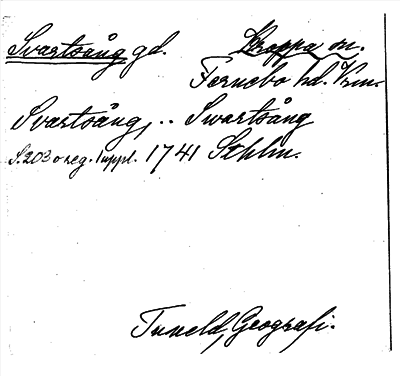 Svartsång gd. Kroppa sn.
Färnebo hd. Vrm.
Svartsång, .. Swartsång
S. 203 o reg. 1 uppl. 1741 Sthlm.
Tuneld, Geografi.